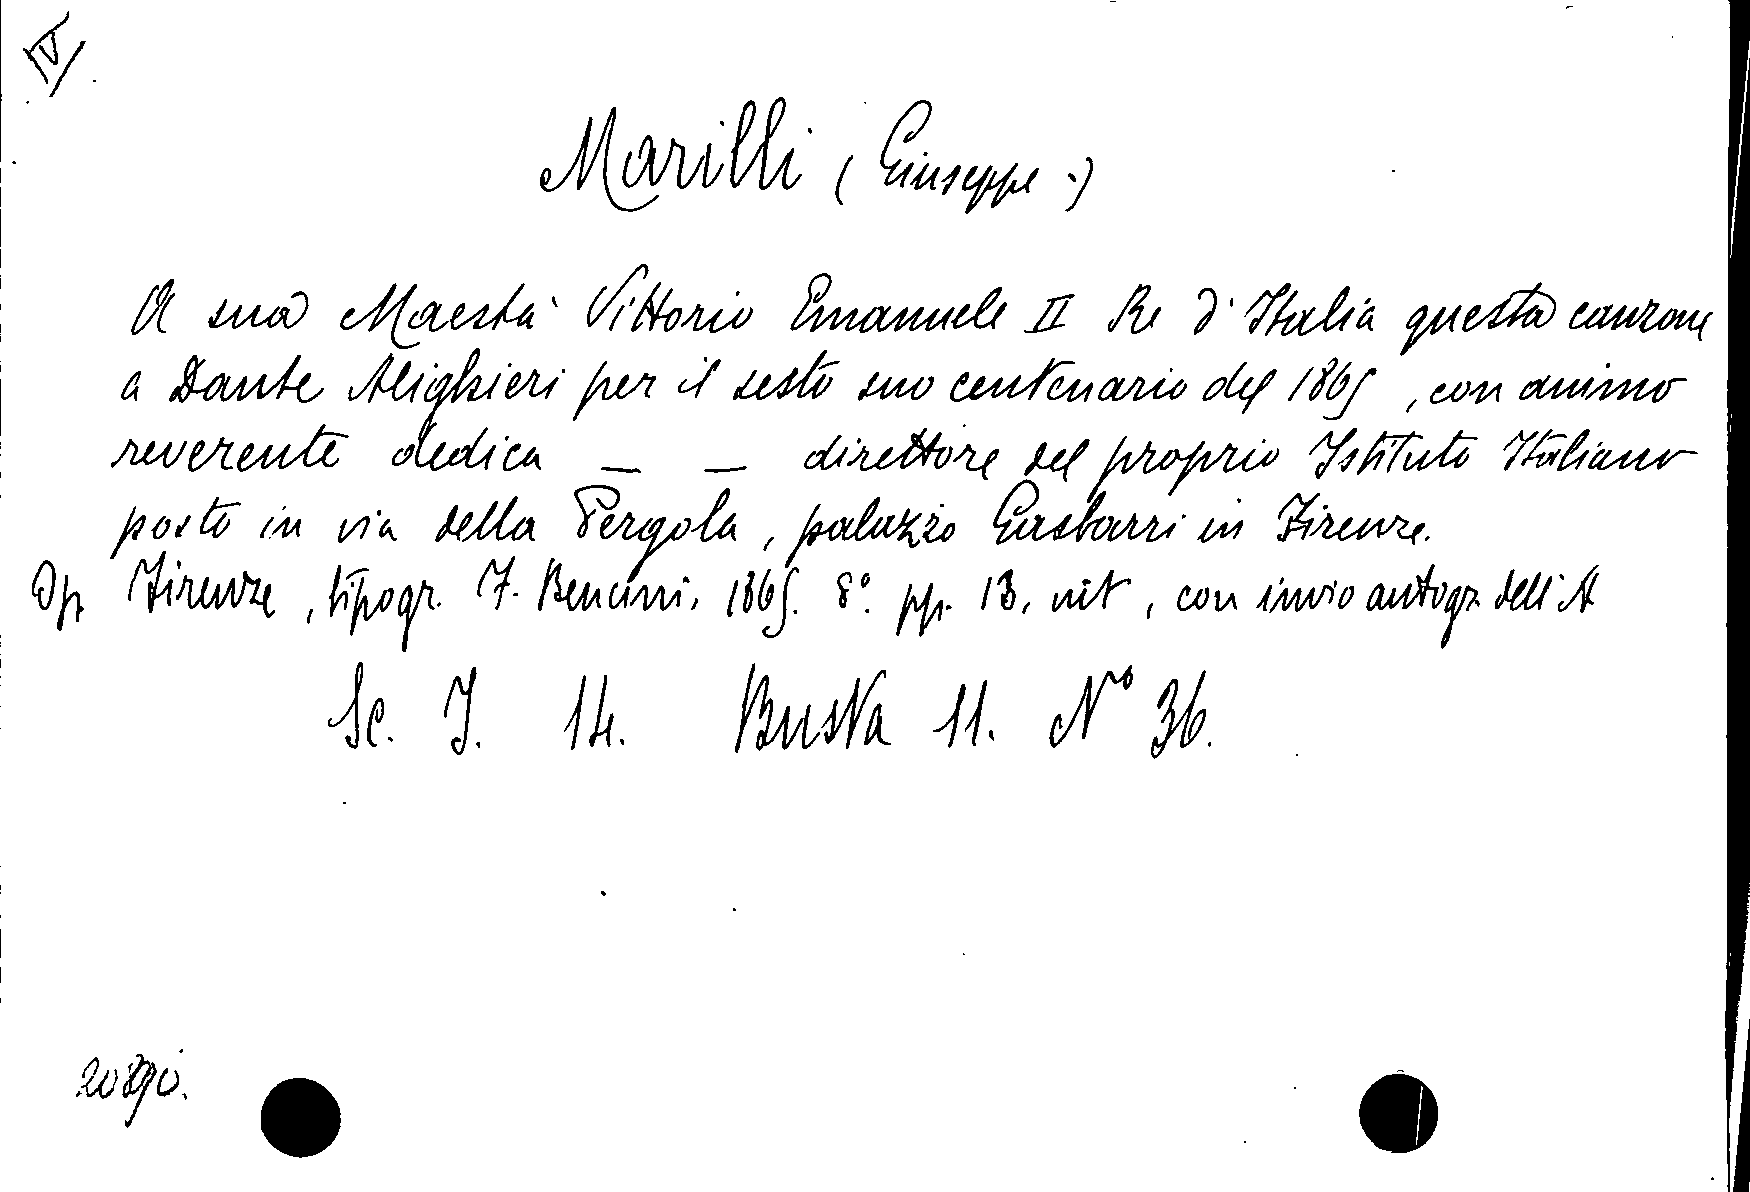 IV
Marilli (Giuseppe.)
A sua Maestà Vittorio Emanuele II Re d'Italia questa canzone
a Dante Alighieri per il sesto suo centenario del 1865, con animo
reverente dedica _ _ direttore del proprio Istituto Italiano
posto in via della Pergola, palazzo Gasbarri in Firenze.
Op Firenze, tipogr. F. Bencini, 1865. 8º. pp. 13. nit, con invio autogr. dell'A
Sc. I. 14. Busta 11. Nº 36.